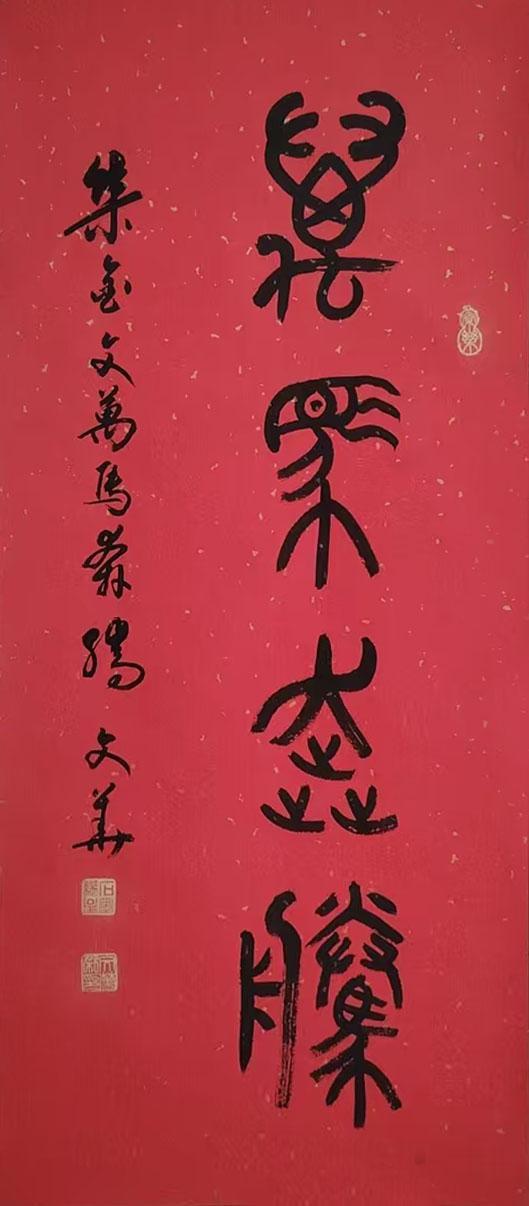 萬馬奔騰
集金文萬馬奔騰 文華